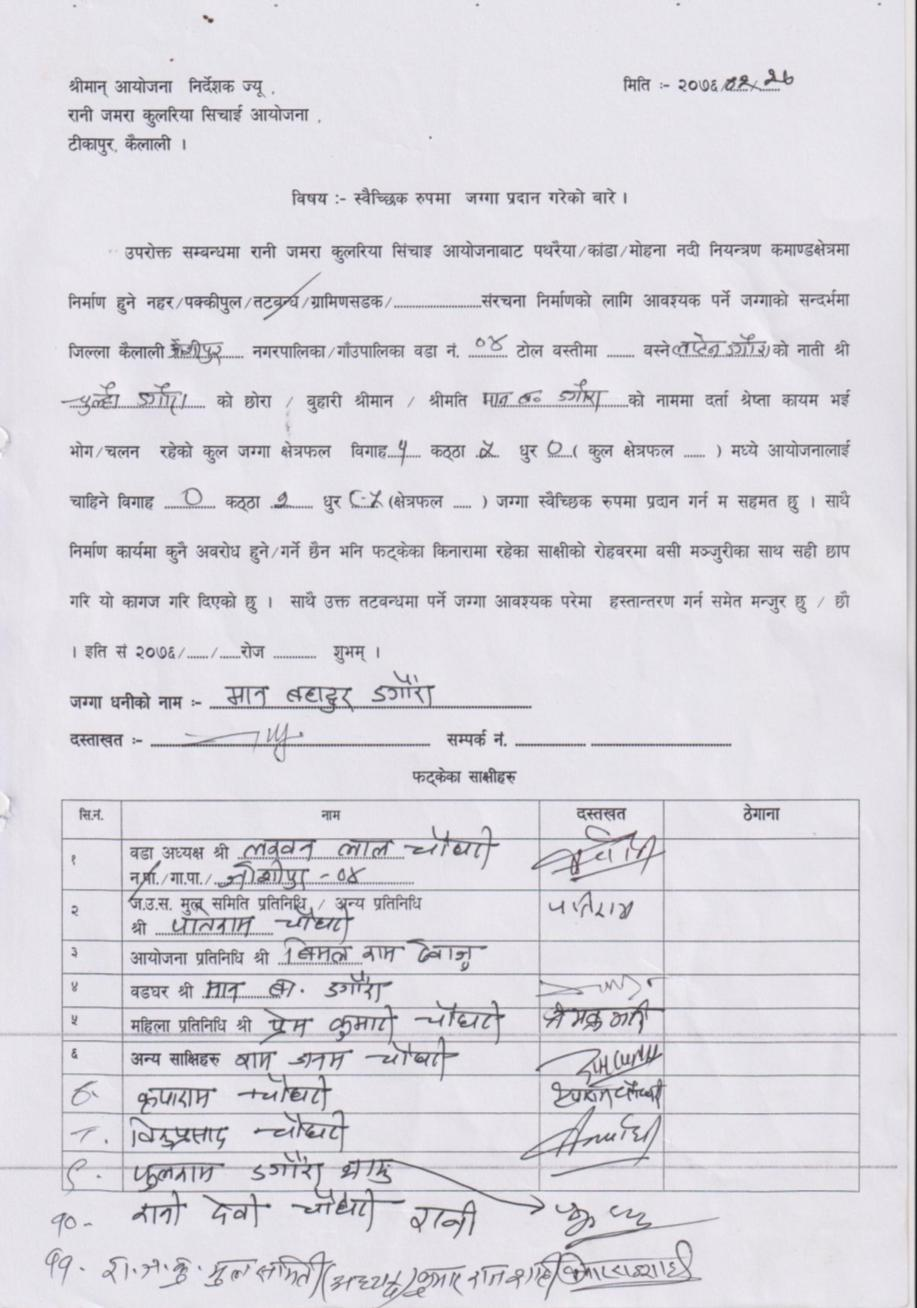 श्रीमान् आयोजना निर्देशक ज्यू , मिति :- २०७६/०२/२७
रानी जमरा कुलरिया सिचाई आयोजना ,
टीकापुर, कैलाली ।
विषय :- स्वैच्छिक रुपमा जग्गा प्रदान गरेको बारे ।
उपरोक्त सम्बन्धमा रानी जमरा कुलरिया सिंचाइ आयोजनाबाट पथरैया/कांडा/मोहना नदी नियन्त्रण कमाण्डक्षेत्रमा
निर्माण हुने नहर/पक्कीपुल/तटबन्ध/ग्रामिणसडक/......................संरचना निर्माणको लागि आवश्यक पर्ने जग्गाको सन्दर्भमा
जिल्ला कैलाली जोशीपुर नगरपालिका/गाँउपालिका वडा नं. ०४ टोल वस्तीमा ....... वस्ने डगौरा को नाती श्री
डगौरा को छोरा / बुहारी श्रीमान / श्रीमति मान ब० डगौरा को नाममा दर्ता श्रेष्ता कायम भई
भोग/चलन रहेको कुल जग्गा क्षेत्रफल विगाह कठ्ठा धुर ०( कुल क्षेत्रफल ...... ) मध्ये आयोजनालाई
चाहिने विगाह ० कठ्ठा धुर (क्षेत्रफल ..... ) जग्गा स्वैच्छिक रुपमा प्रदान गर्न म सहमत छु । साथै
निर्माण कार्यमा कुनै अवरोध हुने/गर्ने छैन भनि फट्केका किनारामा रहेका साक्षीको रोहवरमा वसी मञ्जुरीका साथ सही छाप
गरि यो कागज गरि दिएको छु । साथै उक्त तटवन्धमा पर्ने जग्गा आवश्यक परेमा हस्तान्तरण गर्न समेत मन्जुर छु / छौ
। इति सं २०७६/....../......रोज ............ शुभम् ।
जग्गा धनीको नाम :- मान बहादुर डगौरा
दस्ताखत :- सम्पर्क नं. ....................
फट्केका साक्षीहरु
सि.नं. नाम दस्तखत ठेगाना
१ वडा अध्यक्ष श्री लाल चौधरी
न.पा./गा.पा./ जोशीपुर - ०४
२ ज.उ.स. मुल समिति प्रतिनिधि / अन्य प्रतिनिधि
श्री पातिराम चौधरी पातिराम
३ आयोजना प्रतिनिधि श्री बिमल राम देवाजु
४ वडघर श्री मान ब. डगौरा
५ महिला प्रतिनिधि श्री प्रेम कुमारी चौधरी प्रेमकुमारी
६ अन्य साक्षिहरु राम जनम चौधरी
७. कृपाराम चौधरी
८. चौधरी
९. फुलराम डगौरा
१०- रानी देवी चौधरी रानी
११. रा.ज.कु. मुल समिति (अध्यक्ष) कुमार राज शाही